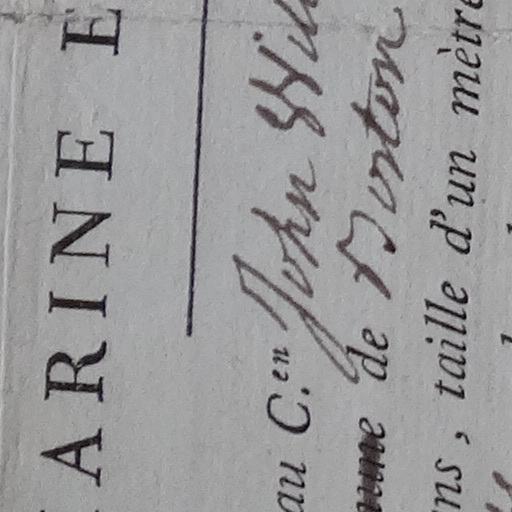 ARINE E
au C.en John Will
de Burton
ns, taille d'un mètre